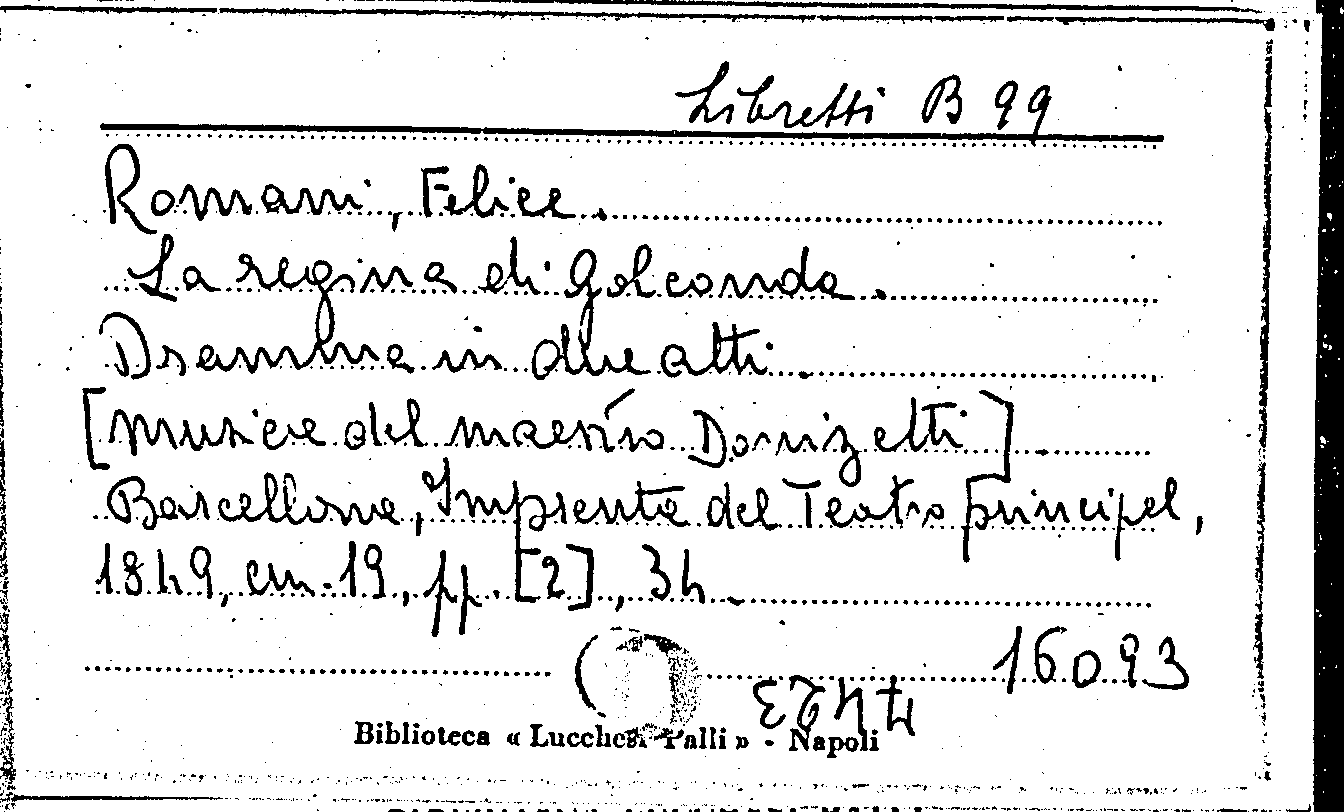 Libretti B 99
Romani, Felice.
La regina di Golconda.
Dramma in due atti.
[musica del maestro Donizetti].
Barcellona, Imprenta del Teatro principal,
1849, cm. 19, pp. [2], 34.
16093
Biblioteca « Lucchesi Palli » - Napoli